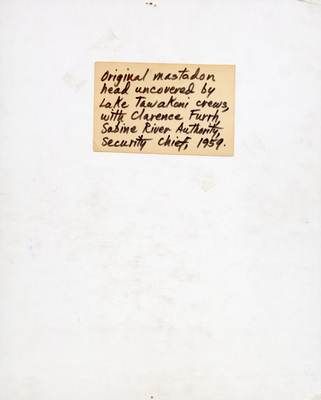 Original mastadon
head uncovered by
Lake Tawakoni crews,
with Clarence Furrh,
Sabine River Authority,
Security Chief, 1959.